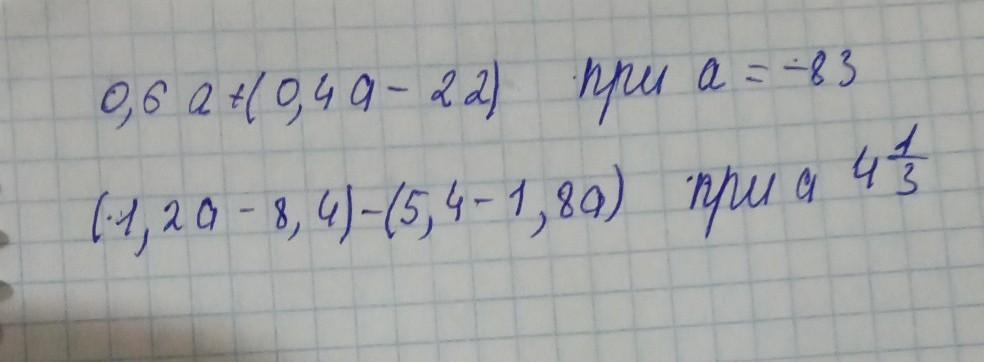 0,6 a + (0,4 a - 22) при a = -83
(1,2a - 8,4) - (5,4 - 1,8a) при a 4 1/3